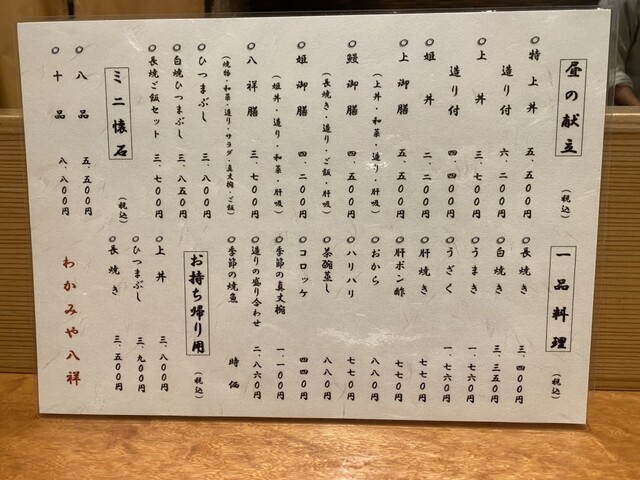 昼の献立
(税込)
◎特上丼 五、五〇〇円
造り付 六、二〇〇円
◎上丼 三、七〇〇円
造り付 四、四〇〇円
◎姫丼 二、二〇〇円
◎上御膳 五、五〇〇円
(上丼・和菜・造り・肝吸)
◎鰻御膳 四、五〇〇円
(長焼き・造り・ご飯・肝吸)
◎姫御膳 四、二〇〇円
(姫丼・造り・和菜・肝吸)
◎八祥膳 三、七〇〇円
(焼物・和菜・造り・サラダ・真丈椀・ご飯)
◎ひつまぶし 三、八〇〇円
◎白焼ひつまぶし 三、八五〇円
◎長焼ご飯セット 三、七〇〇円
ミニ懐石
(税込)
◎八品 五、五〇〇円
◎十品 八、八〇〇円
一品料理
(税込)
◎長焼き 三、四〇〇円
◎白焼き 三、三五〇円
◎うまき 一、七六〇円
◎うざく 一、七六〇円
◎肝焼き 七七〇円
◎肝ポン酢 七七〇円
◎おから 八八〇円
◎ハリハリ 七七〇円
◎茶碗蒸し 八八〇円
◎コロッケ 四四〇円
◎季節の真丈椀 一、一〇〇円
◎造りの盛り合わせ 二、八六〇円
◎季節の焼魚 時価
お持ち帰り用
(税込)
◎上丼 三、八〇〇円
◎ひつまぶし 三、九〇〇円
◎長焼き 三、五〇〇円
わかみや八祥